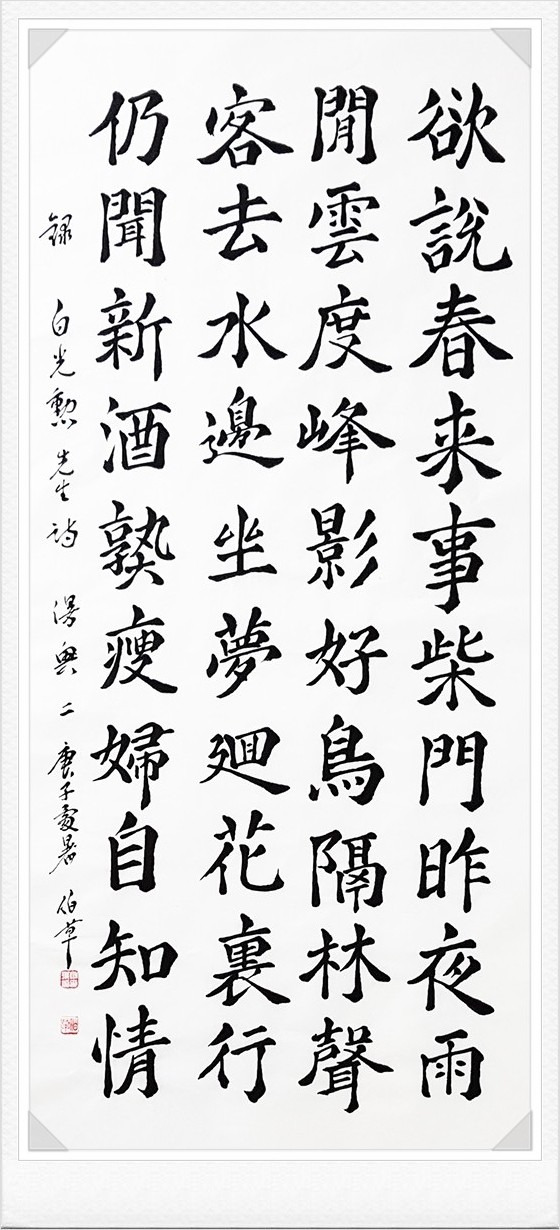 欲說春来事柴門昨夜雨
閒雲度峰影好鳥隔林聲
客去水邊坐夢廻花裏行
仍聞新酒熟瘦婦自知情
録 白光勲先生詩 漫興二 庚子處暑 伯草